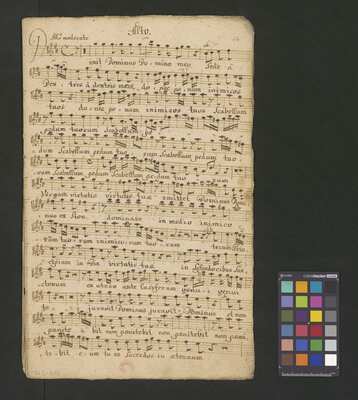 Alto.
All° moderato
Dixit Dominus Domino meo Sede à
Dextris à dextris meis, donec ponam inimicos
tuos donec ponam inimicos tuos Scabellum
pedum tuorum Scabellum pe-
dum Scabellum pedum tuo rum Scabellum pedum tuo-
rum Scabellum pedum Scabellum pedum tuorum
Virgam virtutis virtutis tuae emittet Dominus
nus ex Sion, dominare in medio inimico
rum tuorum inimicorum tuorum tecum
cipium in die virtutis tuae in Splendoribus San
ctorum ex utero ante luciferum genui genui
te, juravit Dominus juravit Dominus et non
paenite bit non paenitebit non paenitebit non paeni
tebit tu es Sacerdos in aeternum